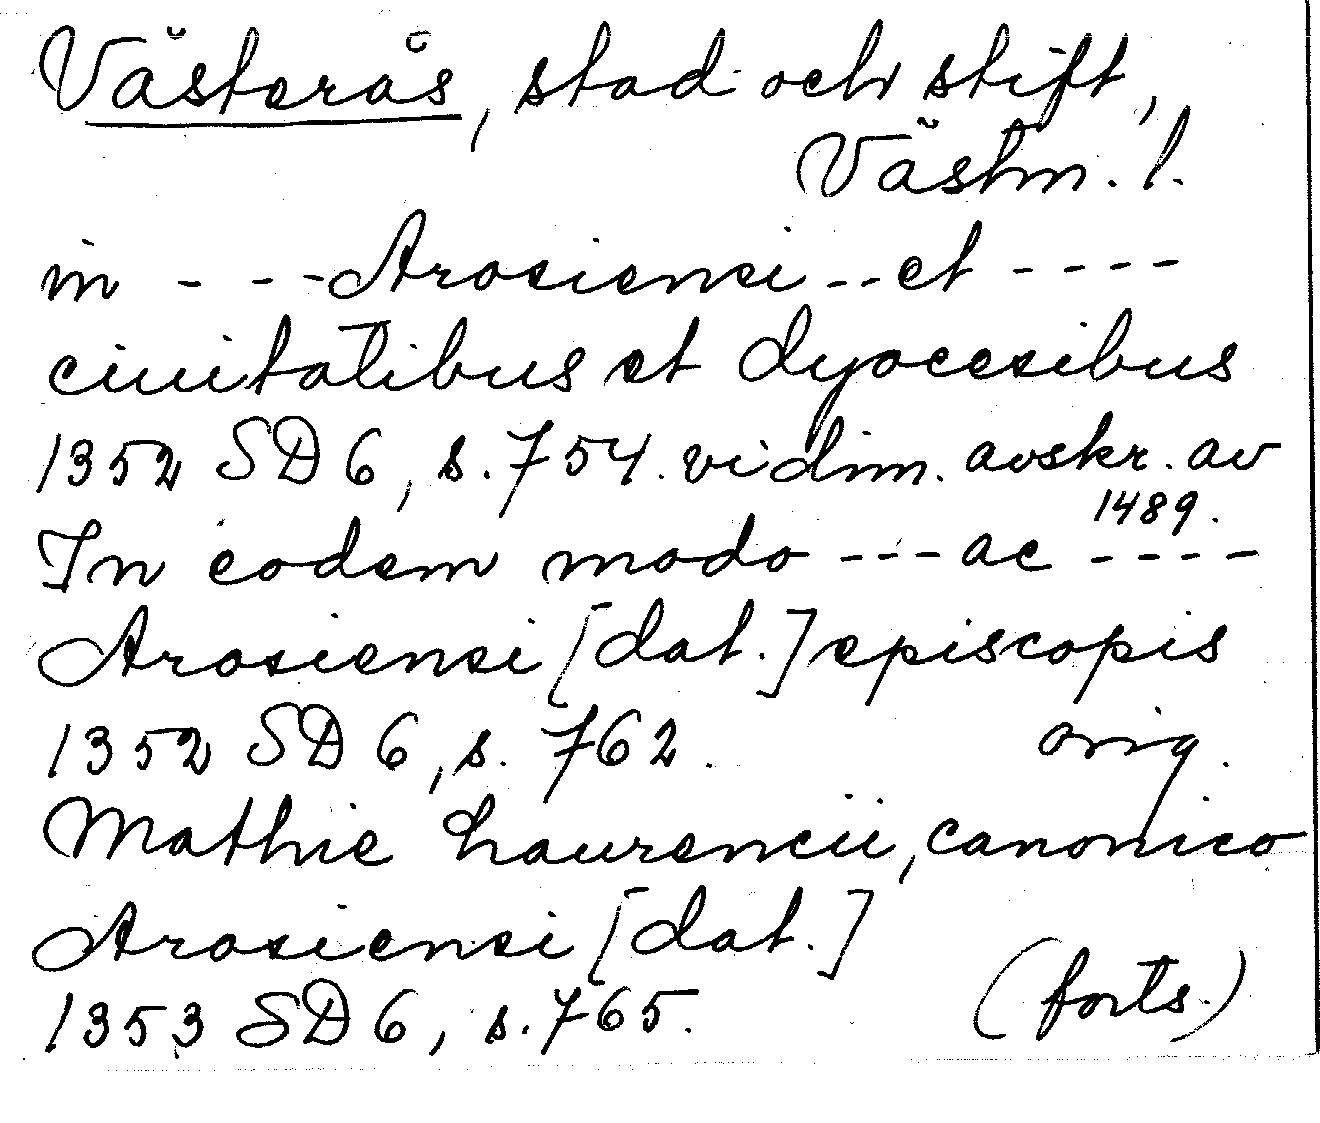 Västerås, stad och stift,
Västm. l.
in - - - Arosiensi - - et - - - -
ciuitatibus et dyocesibus
1352 SD 6, s. 754. vidim. avskr. av
1489.
In eodem modo - - - ac - - - -
Arosiensi [dat.] episcopis
1352 SD 6, s. 762. orig.
Mathie Laurencii, canonico
Arosiensi [dat.]
1353 SD 6, s. 765. (forts.)